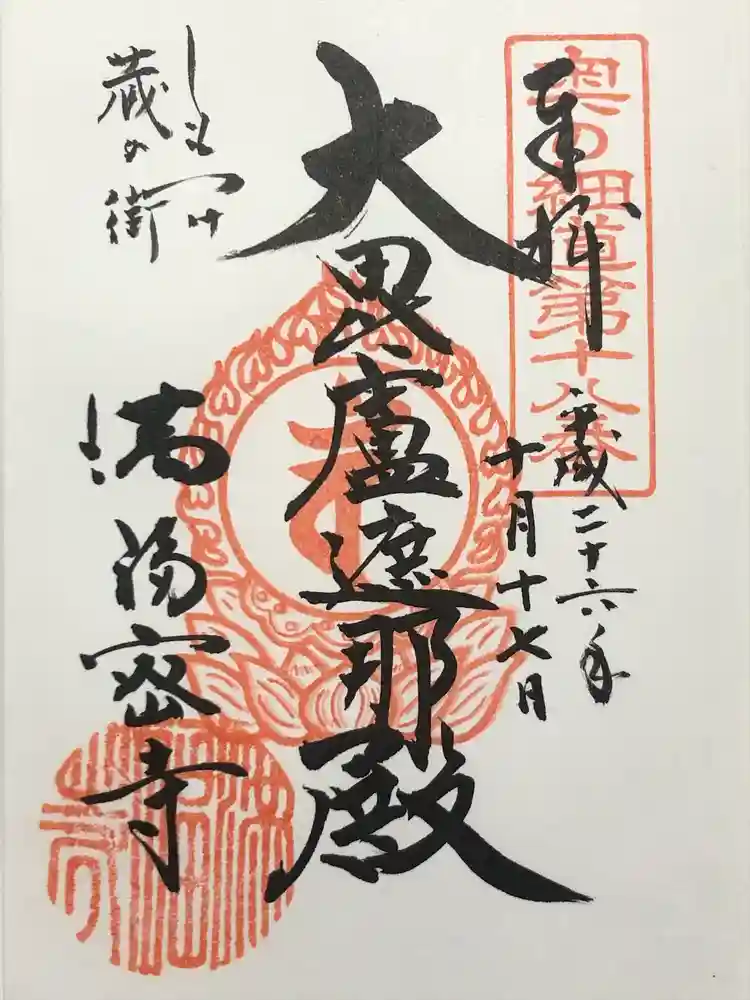 奉拝
奥の細道第十八番
平成二十六年
十月十七月
大毘盧遮那殿
しもつけ
蔵の街
満福密寺